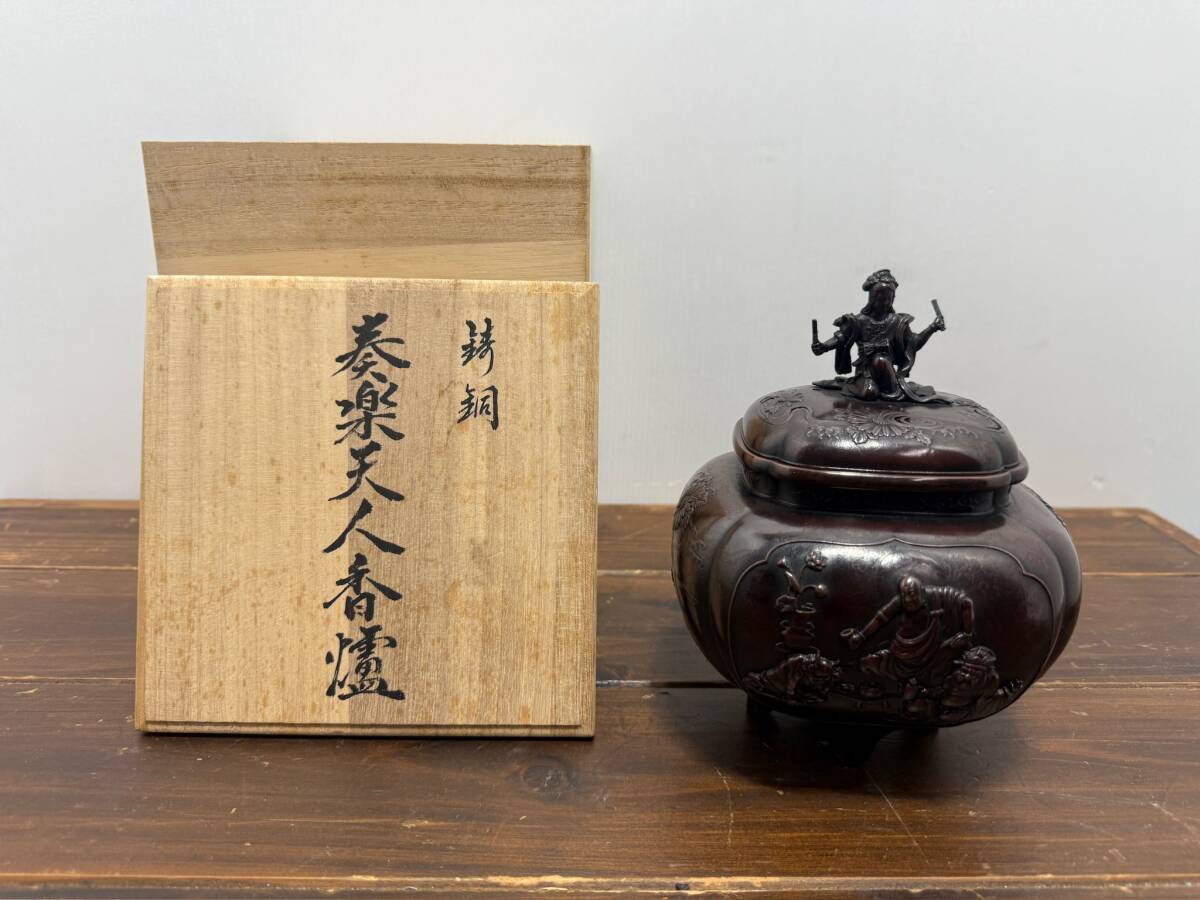 鋳銅
奏楽天人香爐